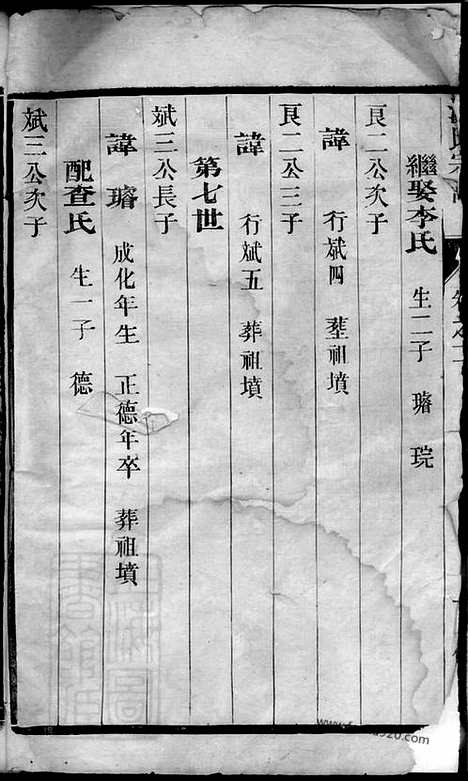 氏宗
繼娶李氏 生二子 璿 琓
艮二公次子
諱 行斌四 塟祖墳
艮二公三子
諱 行斌五 葬祖墳
第七世
斌三公長子
諱璿 成化年生 正德年卒 葬祖墳
配查氏 生一子 德
斌三公次子